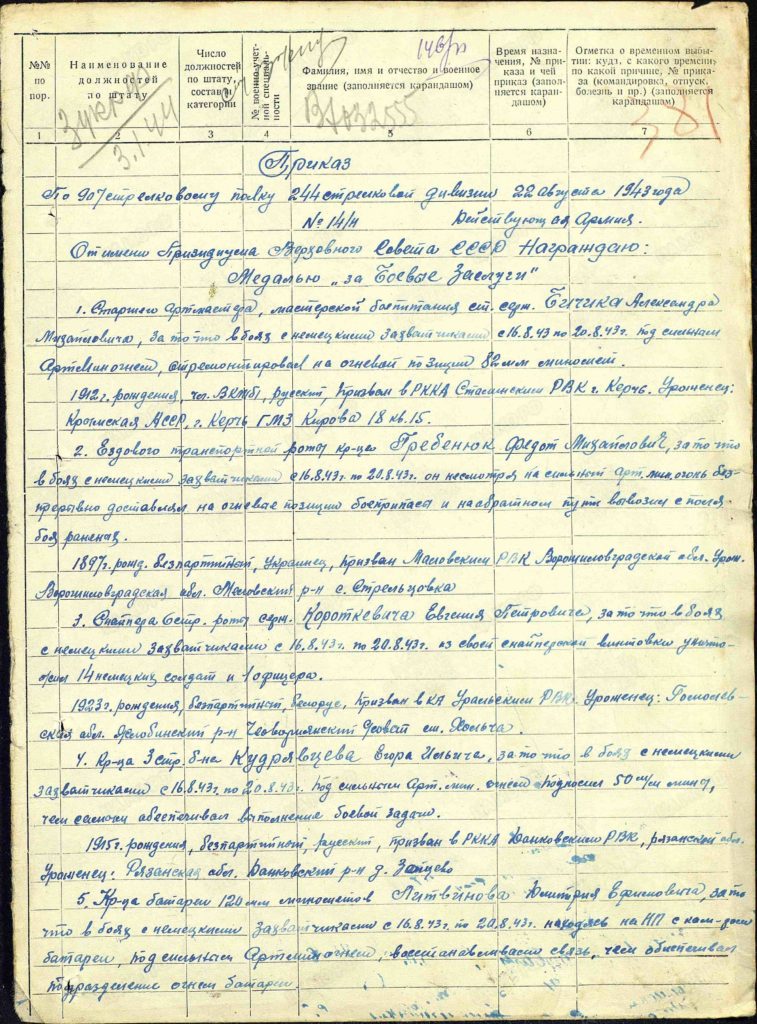 №№ по пор.
Наименование должностей по штату
Число должностей по штату, состава и категории
№ военно-учетной специальности
Фамилия, имя и отчество и военное звание (заполняется карандашом)
Время назначения, № приказа и чей приказ (заполняется карандашом)
Отметка о временном выбытии: куда, с какого времени, по какой причине, № приказа (командировка, отпуск, болезнь и пр.) (заполняется карандашом)
1 2 3 4 5 6 7
3.1.44
Приказ
По 907 стрелковому полку 244 стрелковой дивизии 22 августа 1943 года
№ 14/н Действующая Армия.
От имени Президиума Верховного Совета СССР Награждаю:
Медалью „за Боевые Заслуги"
1. Старшего Артмастера, мастерской боепитания ст. серж. Бичика Александра
Михайловича, за то что в боях с немецкими захватчиками с 16.8.43 по 20.8.43г. под сильным
Артминогнем, отремонтировал на огневой позиции 82 мм миномет.
1912 г. рождения, чл. ВКП(б), русский, призван в РККА Сталинским РВК г. Керчь. Уроженец:
Крымская АССР, г. Керчь ГМЗ Кирова 18 кв. 15.
2. Ездового транспортной роты кр-ца Гребенюк Федот Михайлович, за то что
в боях с немецкими захватчиками с 16.8.43г по 20.8.43г. он несмотря на сильный арт. мин. огонь бес-
прерывно доставлял на огневые позиции боеприпасы и на обратном пути вывозил с поля
боя раненых.
1897 г. рожд. беспартийный, Украинец, призван Меловским РВК Ворошиловградской обл. Урож.
Ворошиловградская обл. Меловский р-н с. Стрельцовка
3. Снайпера 6 стр. роты серж. Короткевича Евгения Петровича, за то что в боях
с немецкими захватчиками с 16.8.43г. по 20.8.43г. из своей снайперской винтовки уничто-
жил 14 немецких солдат и 1 офицера.
1923 г. рождения, беспартийный, белорус, призван в КА Уральским РВК. Уроженец: Гомельев-
ская обл. Жлобинский р-н совет ст. Хальча.
4. Кр-ца 3 стр. б-на Кудрявцева Егора Ильича, за то что в боях с немецкими
захватчиками с 16.8.43г. по 20.8.43г. под сильным Арт. мин. огнем подносил 50 м/м мины,
чем самым обеспечивал выполнение боевой задачи.
1915 г. рождения, беспартийный, русский, призван в РККА Данковским РВК, рязанской обл.
Уроженец: Рязанская обл. Данковский р-н д. Зайцево
5. Кр-ца батареи 120 мм минометов Литвинова Дмитрия Ефимовича, за то
что в боях с немецкими захватчиками с 16.8.43г. по 20.8.43г. находясь на НП с ком-ром
батареи, под сильным Артминогнем, восстанавливал связь, чем обеспечивал
подразделение огнем батареи.